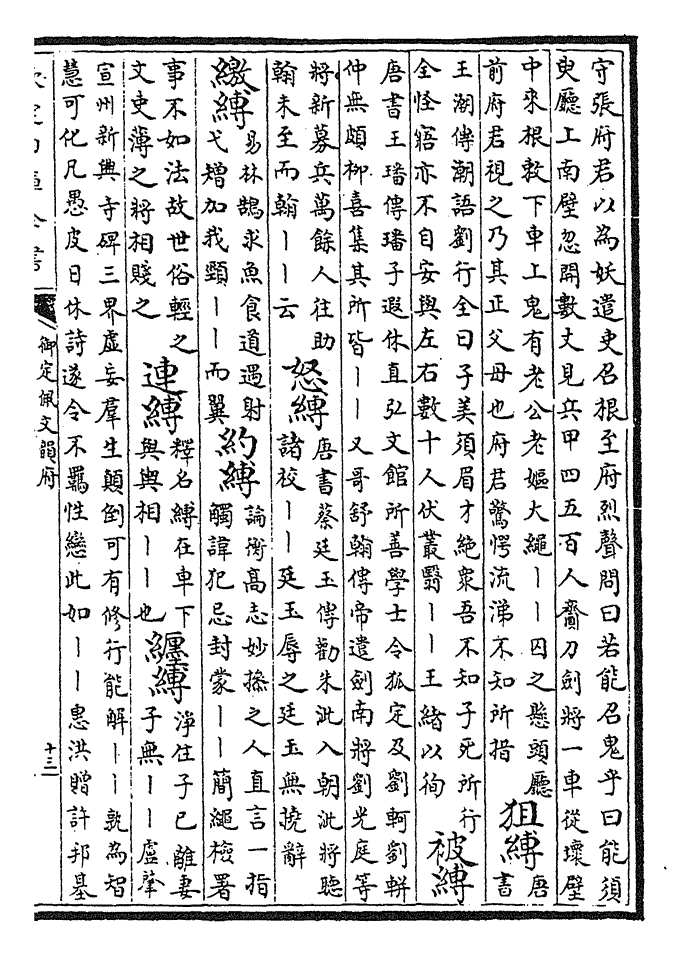 守張府君以為妖遣吏召根至府烈聲問曰若能召鬼乎曰能須
臾廳上南壁忽開數丈見兵甲四五百人齎刀劍將一車從壞壁
中來根敕下車上鬼有老公老嫗大繩丨丨囚之懸頭廳
前府君視之乃其正父母也府君驚愕流涕不知所措
狙縛
唐
書
王潮傳潮語劉行全曰子美須眉才絶衆吾不知子死所行
全怪寤亦不自安與左右數十人伏叢翳丨丨王緒以徇
被縛
唐書王璠傳璠子遐休直弘文館所善學士令狐定及劉軻劉輧
仲無頗柳喜集其所皆丨丨又哥舒翰傳帝遣劍南將劉光庭等
將新募兵萬餘人往助
翰未至而翰丨丨云
怒縛
唐書蔡廷玉傳勸朱泚入朝泚將聽
諸校丨丨廷玉辱之廷玉無撓辭
繳縛
易林鵠求魚食道遇射
弋矰加我頸丨丨而翼
約縛
論衡高志妙操之人直言一指
觸諱犯忌封蒙丨丨簡繩檢署
事不如法故世俗輕之
文吏薄之將相賤之
連縛
釋名縛在車下
與輿相丨丨也
纏縛
淨住子已離妻
子無丨丨盧肇
宣州新興寺碑三界虛妄羣生顛倒可有修行能解丨丨孰為智
慧可化凡愚皮日休詩遂令不羈性戀此如丨丨惠洪贈許邦基
欽定四庫全書
御定佩文韻府
十三